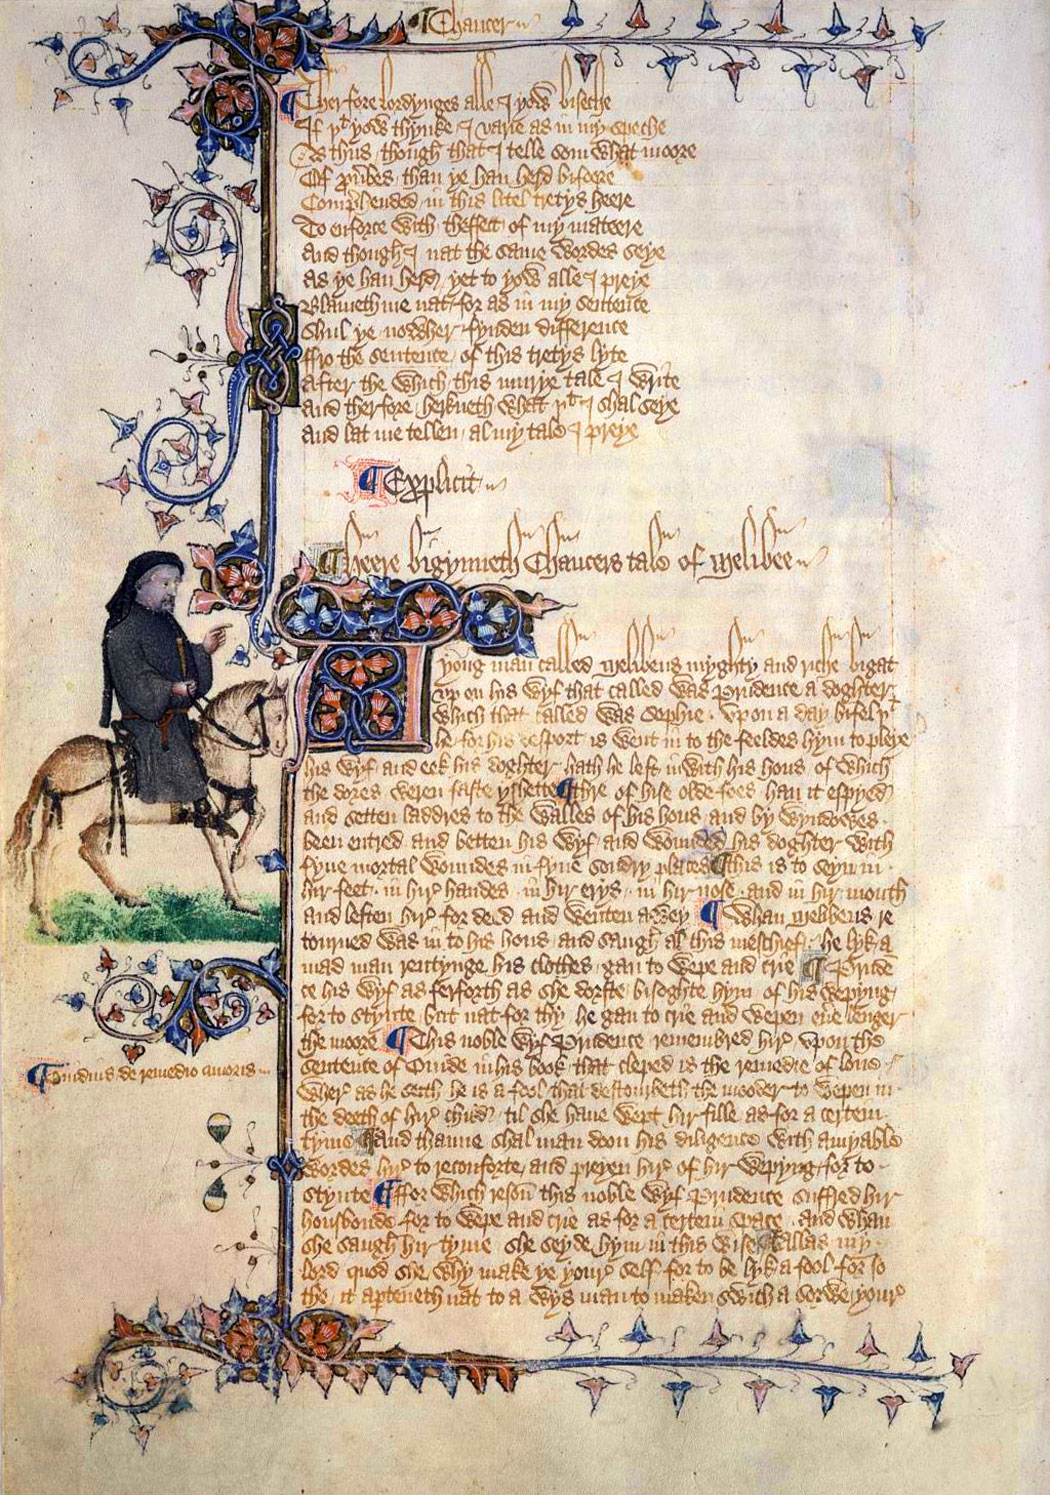 ¶ Chaucer
¶ Therfore lordynges alle I yow biseche
If þt yow thynke I varie as in my speche
As thus though that I telle som what moore
Of prouerbes than ye han herd bifoore
Comprehended in this litel tretys heere
To enforce with theffect of my mateere
And though I nat the same wordes seye
As ye han herd yet to yow alle I preye
Blameth me nat for as in my sentence
Shul ye nowher fynden difference
ffro the sentence of this tretys lyte
After the which this murye tale I write
And therfore herkneth what þt I shal seye
And lat me tellen al my tale I preye
¶ Explicit
¶ Heere bigynneth Chaucers tale of Melibee
A yong man called Melibeus myghty and riche bigat
vp on his wyf that called was Prudence a doghter
which that called was Sophie. vpon a day bifel þt
he for his desport is went in to the feeldes hym to pleye
his wyf and eek his doghter hath he left inwith his hous of which
the dores weren faste yshette ¶ Thre of hise olde foes han it espyed
and setten laddres to the walles of his hous and by wyndowes
been entred and betten his wyf and wounded his doghter with
fyue mortal woundes in fyue sondry places ¶ This is to seyn in
hir feet. in hir handes. in hir erys. in hir nose. and in hir mouth
and leften hir for deed and wenten awey ¶ Whan Melibeus re
tourned was in to his hous and saugh al this meschief. he lyk a
mad man rentynge his clothes gan to wepe and crie ¶ Pruden
ce his wyf as ferforth as she dorste bisoghte hym of his wepyng
for to stynte but nat for thy he gan to crie and wepen euere lenger
the moore ¶ This noble wyf Prudence remembred hir vpon the
sentence of Ouide in his book that cleped is the remedie of loue
Wher as he seith he is a fool that destourbeth the mooder to wepen in
the deeth of hir child til she haue wept hir fille as for a certein
tyme ¶ And thanne shal man doon his diligence with amyable
wordes hir to reconforte and preyen hir of hir wepyng for to
stynte ¶ ffor which reson this noble wyf Prudence suffred hir
housbonde for to wepe and crie as for a certein space. and whan
she saugh hir tyme she seyde hym in this wise ¶ Allas my
lord quod she why make ye your self for to be lyk a fool for so
the it aperteneth nat to a wys man to maken swich a sorwe your
¶ Ouidius de remedio amoris